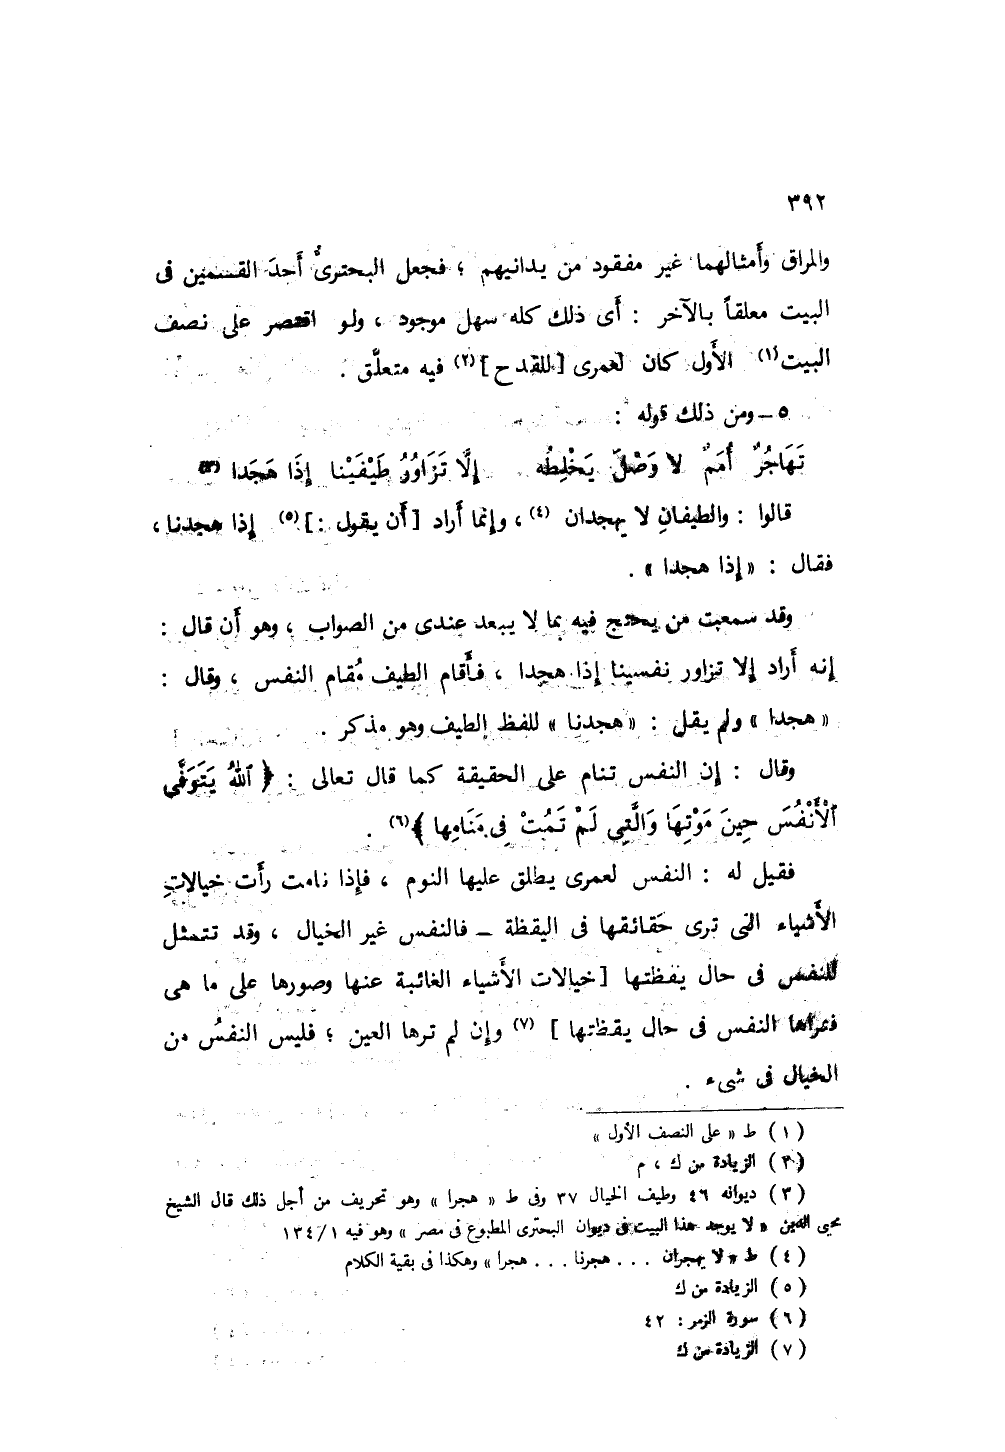 ٣٩٢
والمراق وأمثالهما غير مفقود من يدانيهم ؛ فجعل البحترىُّ أحدَ القسمين فى
البيت معلقاً بالآخر : أى ذلك كله سهل موجود ، ولو اقتصر على نصف
البيت(١) الأول كان لعمرى [ للقدح ](٢) فيه متعلَّق .
٥ – ومن ذلك قوله :
تَهَاجُرٌ أُمَمٌ لا وَصْلٌ يَخْلِطُه إِلَّا تَزَاوُرُ طَيْفَيْنا إِذَا هَجَدا (٣)
قالوا : والطيفانِ لا يهجدان (٤) ، وإنما أراد [ أن يقول : ](٥) إذا هجدنا ،
فقال : « إذا هجدا » .
وقد سمعت من يحتج فيه بما لا يبعد عندى من الصواب ، وهو أن قال :
إنه أراد إلا تزاور نفسينا إذا هجدا ، فأقام الطيف مُقام النفس ، وقال :
« هجدا » ولم يقل : « هجدنا » للفظ الطيف وهو مذكر .
وقال : إن النفس تنام على الحقيقة كما قال تعالى : ﴿ ٱللهُ يَتَوَفَّى
ٱلْأَنْفُسَ حِينَ مَوْتِهَا وَالَّتِي لَمْ تَمُتْ فِى مَنَامِها ﴾(٦) .
فقيل له : النفس لعمرى يطلق عليها النوم ، فإذا نامت رأت خيالاتِ
الأشياء التى ترى حَقائقها فى اليقظة – فالنفس غير الخيال ، وقد تتمثل
للنفس فى حال يقظتها [ خيالات الأشياء الغائبة عنها وصورها على ما هى
فتراها النفس فى حال يقظتها ] (٧) وإن لم ترها العين ؛ فليس النفسُ من
الخيال فى شىء .
(١) ط « على النصف الأول »
(٢) الزيادة من ك ، م
(٣) ديوانه ٤٦ وطيف الخيال ٣٧ وفى ط « هجرا » وهو تحريف من أجل ذلك قال الشيخ
محيى الدين « لا يوجد هذا البيت فى ديوان البحترى المطبوع فى مصر » وهو فيه ١٣٤/١
(٤) ط « لا يهجران . . . هجرنا . . . هجرا » وهكذا فى بقية الكلام
(٥) الزيادة من ك
(٦) سورة الزمر : ٤٢
(٧) الزيادة من ك